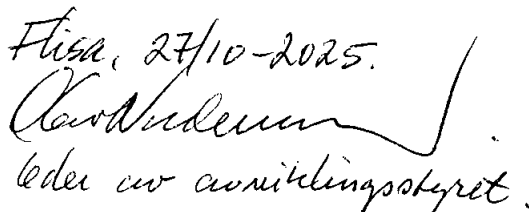 Flisa, 27/10-2025.
leder av avviklingsstyret.